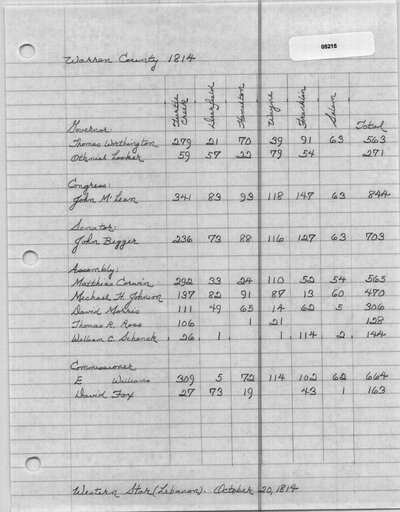 05215
Warren County 1814
Turtle Creek Deerfield Hamilton Wayne Franklin Salem Total
Governor:
Thomas Worthington 279 21 70 39 91 63 563
Othniel Looker 59 57 22 79 54 271
Congress:
John McLean 341 83 93 118 147 63 844
Senator:
John Bigger 236 73 88 116 127 63 703
Assembly:
Matthias Corwin 292 33 24 110 52 54 565
Michael H. Johnson 137 82 91 87 13 60 470
David Morris 111 49 65 14 62 5 306
Thomas R. Ross 106 1 21 128
William C. Schenck 26 1 1 114 2 144
Commissioner
E Williams 309 5 72 114 102 62 664
David Fox 27 73 19 43 1 163
Western Star (Lebanon). October 20, 1814